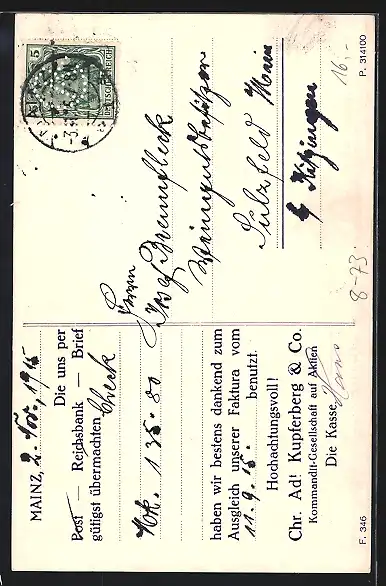 MAINZ, 2. Nov. 1915
Die uns per
Post — Reichsbank — Brief
gütigst übermachten Check
Mk. 135.80
haben wir bestens dankend zum
Ausgleich unserer Faktura vom
11.9.15. benutzt.
Hochachtungsvoll!
Chr. Adt Kupferberg & Co.
Kommandit-Gesellschaft auf Aktien
Die Kasse
F. 346
5
DEUTSCHES REICH
Herrn
Weingutsbesitzer
Sulzfeld Main
b/ Kitzingen
P. 314100
16,-
8-73